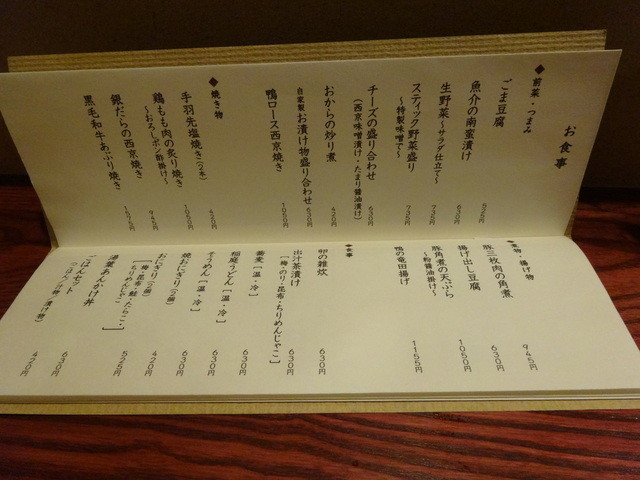 お食事
◆前菜・つまみ
ごま豆腐 525円
魚介の南蛮漬け 630円
生野菜～サラダ仕立て～ 735円
スティック野菜盛り 735円
～特製味噌で～
チーズの盛り合わせ 630円
(西京味噌漬け・たまり醤油漬け)
おからの炒り煮 420円
自家製お漬け物盛り合わせ 630円
鴨ロース西京焼き 1050円
◆焼き物
手羽先塩焼き(2本) 420円
鶏もも肉の炙り焼き 1050円
～おろしポン酢掛け～
銀だらの西京焼き 945円
黒毛和牛あぶり焼き 1575円
◆煮物・揚げ物
豚三枚肉の角煮 945円
揚げ出し豆腐 630円
豚角煮の天ぷら 1050円
～粉醤油掛け～
鴨の竜田揚げ 1155円
◆食事
卵の雑炊 630円
出汁茶漬け 630円
[梅・のり・昆布・ちりめんじゃこ]
蕎麦[温・冷] 630円
稲庭うどん[温・冷] 630円
そうめん[温・冷] 630円
焼おにぎり(2個) 630円
おにぎり(2個) 420円
[梅・昆布・鮭・たらこ・ちりめんじゃこ]
湯葉あんかけ丼 525円
ごはんセット 630円
(ごはん・汁物・漬け物) 420円